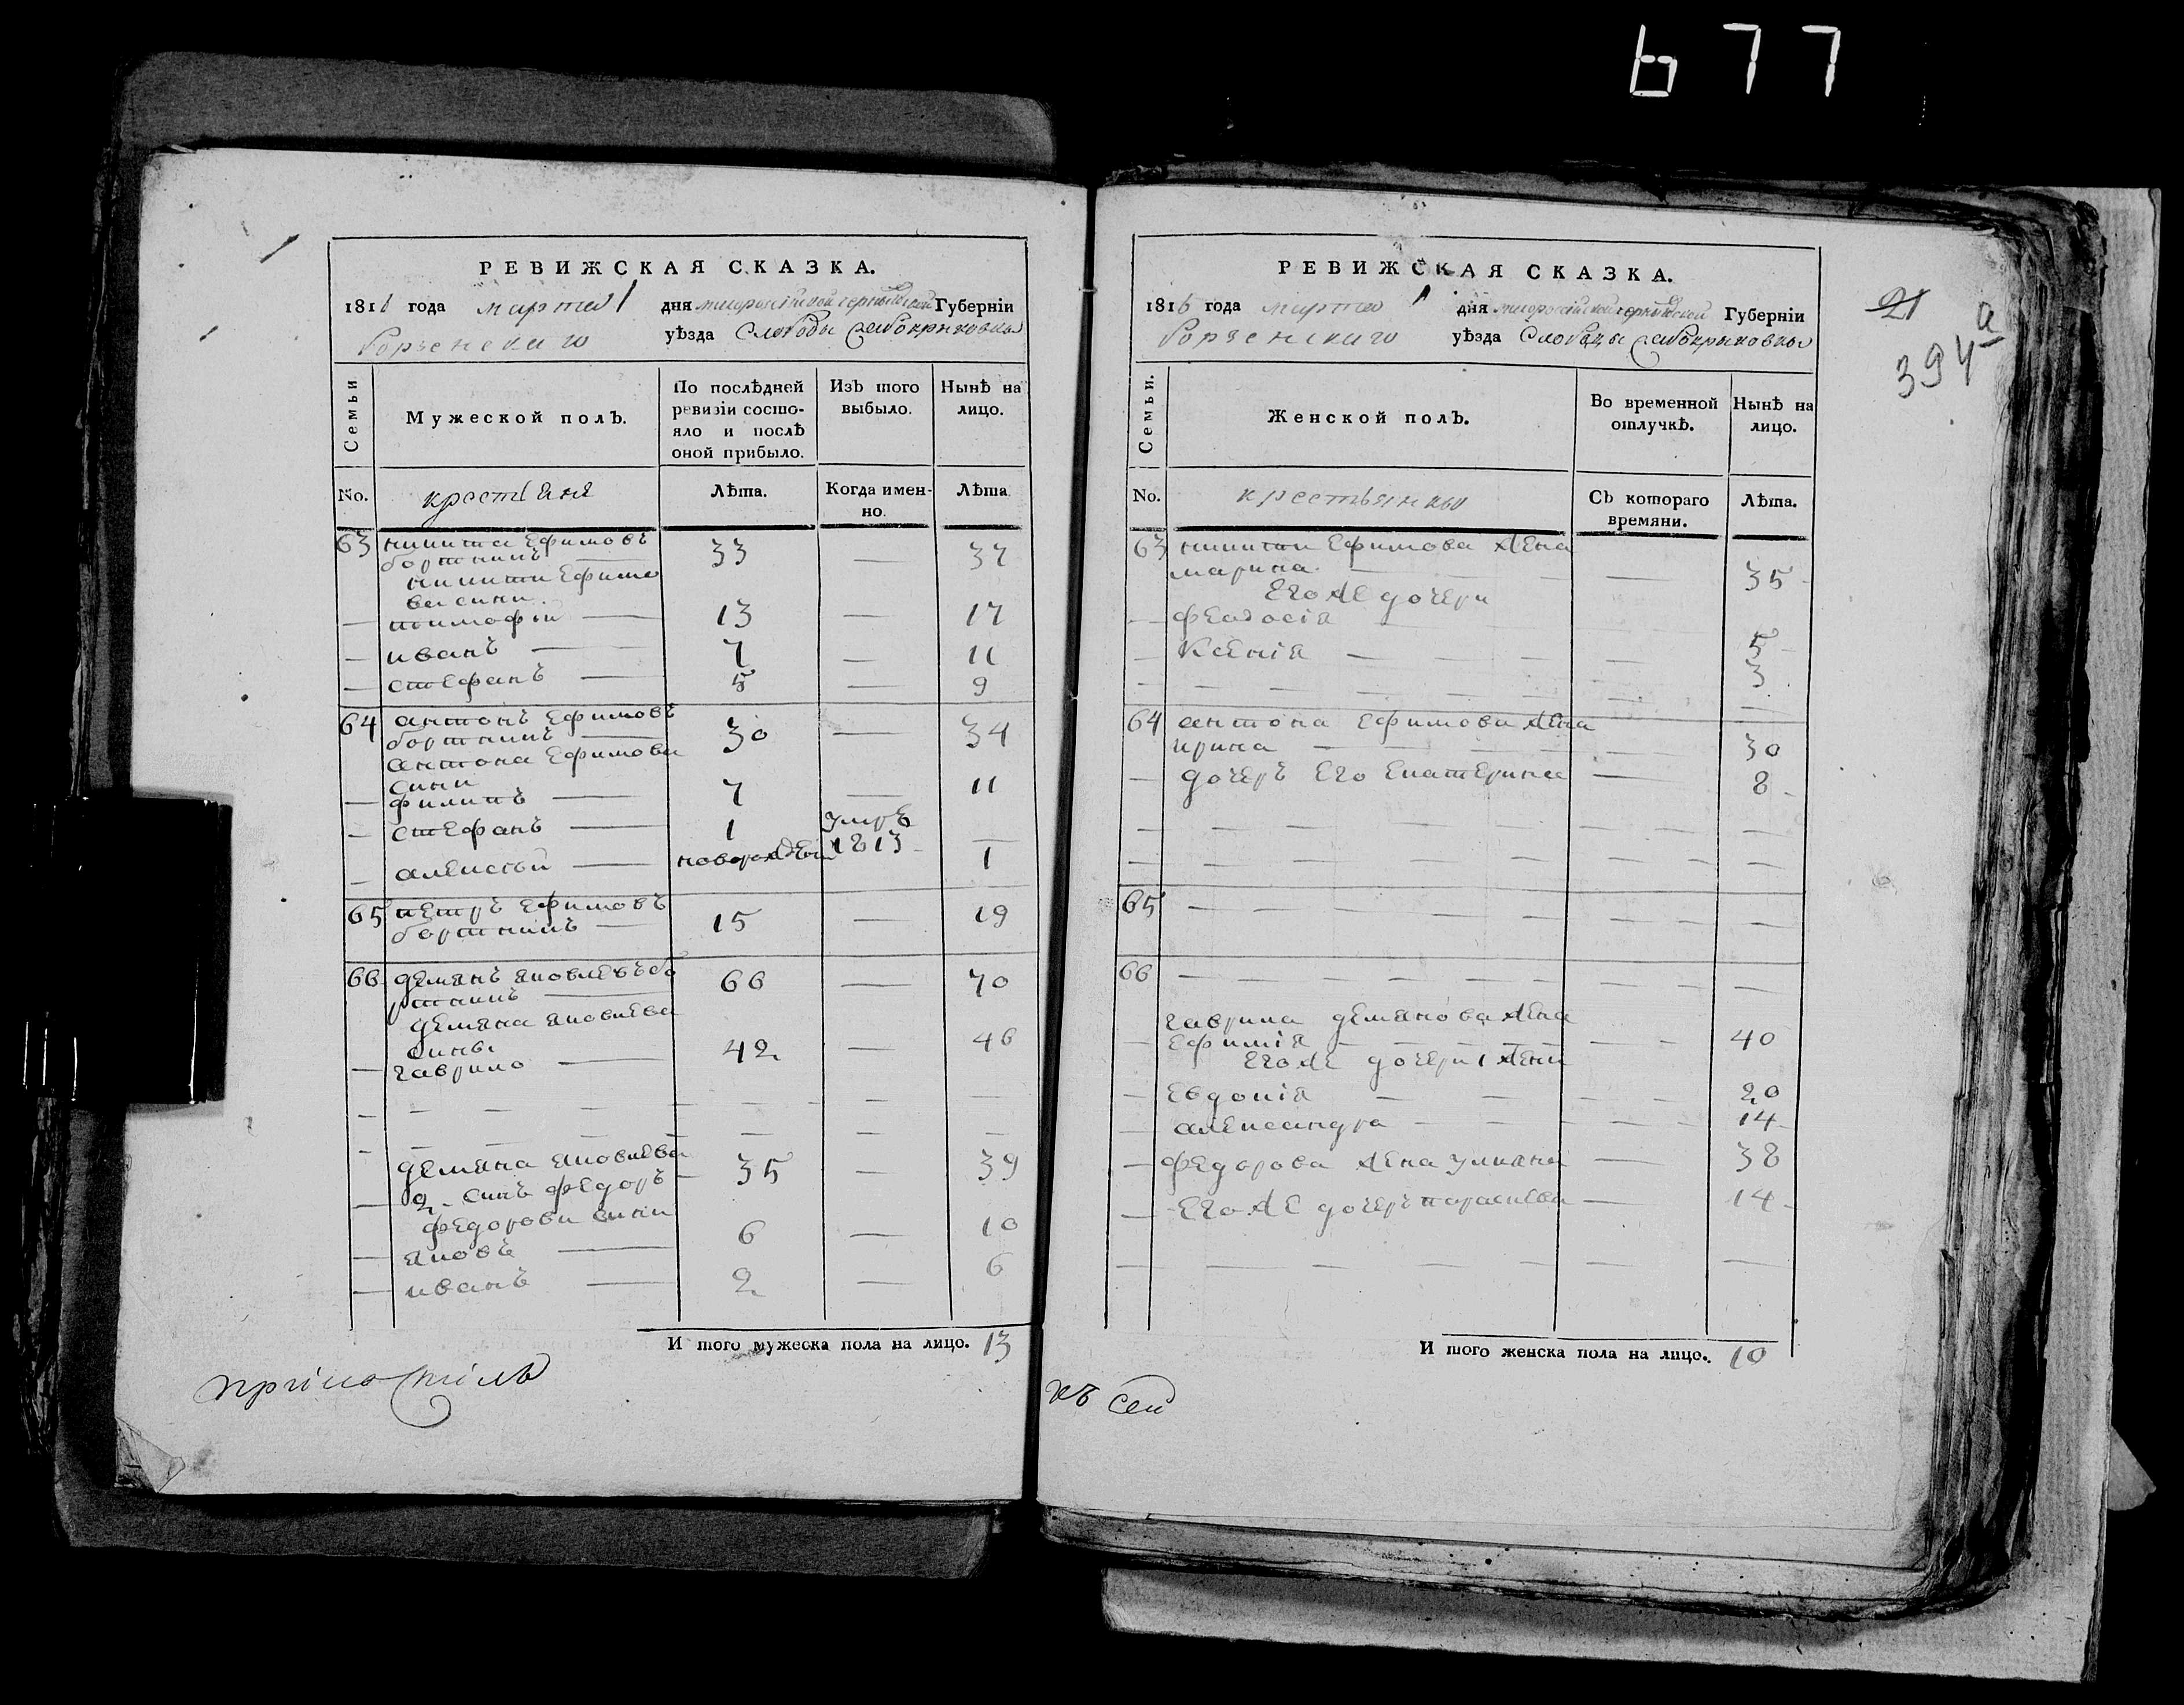 677
РЕВИЖСКАЯ СКАЗКА.
1816 года марта 1 дня малоросiйской черниговской Губернiи
борзенскаго уѣзда Слободы
Семьи
Мужеской полъ.
По послѣдней ревизiи состояло и послѣ оной прибыло.
Изъ того выбыло.
Нынѣ на лицо.
No.
крестьяне
Лѣта.
Когда именно.
Лѣта
63 никита Ефимовъ
бортникъ — 33 — 37
никити Ефимо
ва сини
— тимофiй — 13 — 17
— иванъ — 7 — 11
— стЕфанъ — 5 — 9
64 антонъ Ефимовъ
бортникъ — 30 — 34
антона Ефимова
сини
— филипъ — 7 — 11
— стЕфанъ — 1 умръ 1813 —
— алЕксѣй — новорождЕн 1
65 пЕтръ Ефимовъ
бортникъ — 15 — 19
66 дЕмянъ яковлЕвъ бо
ртникъ — 66 — 70
дЕмяна яковлЕва
сины
— гаврило — 42 — 46
дЕмяна яковлЕва
— 2. синъ фЕдоръ — 35 — 39
фЕдорови сини
— яковъ — 6 — 10
— иванъ — 2 — 6
И того мужеска пола на лицо. 13
РЕВИЖСКАЯ СКАЗКА.
1816 года марта 1 дня малоросiйской черниговской Губернiи
борзенскаго уѣзда Слободы
21
394 а
Семьи.
Женской полъ.
Во временной отлучкѣ.
Нынѣ на лицо.
No.
крестьянки
Съ котораго времяни.
Лѣта.
63 никити Ефимова жЕна
марина — 35
Его жЕ дочЕри
— фЕодосiя — 5
— КсЕнiя — 3
64 антона Ефимова жЕна
ирина — 30
— дочЕръ Его Екатерина — 8
65 —
66 —
гаврила дЕмянова жЕна
— Ефимiя — 40
Его жЕ дочЕри 1 жЕни
— Евдокiя — 20
— алЕксандра — 14
— фЕдорова жЕна улияна — 38
— Его жЕ дочЕръ параскЕва — 14
И того женска пола на лицо. 10
къ сей